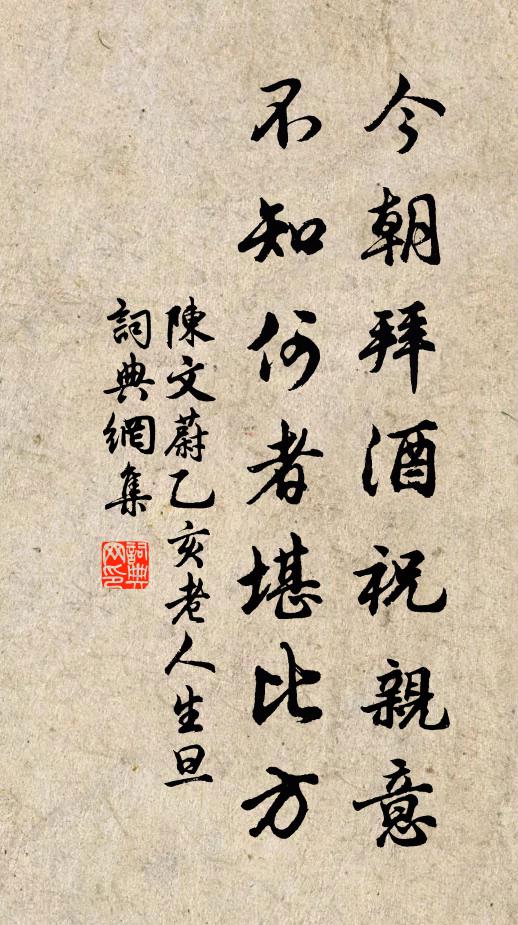 今朝拜酒祝親意
不知何者堪比方
陳文蔚乙亥老人生旦
詞典網集
詞典
网印